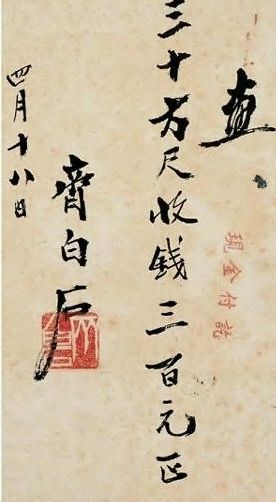 画
三十方尺收钱三百元正
現金付訖
齊白石
四月十八日